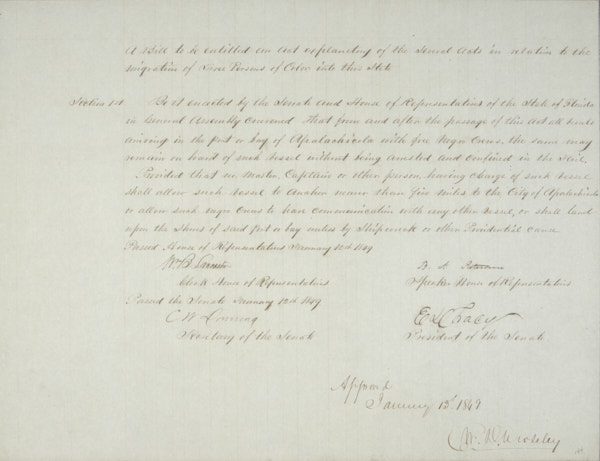 A Bill to be entitled an act explanatory of the Several Acts in relation to the
migration of Free Persons of Color into this State
Section 1st. Be it enacted by the Senate and House of Representatives of the State of Florida
in General Assembly Convened That from and after the passage of this Act all vessels
arriving in the port or bay of Apalachicola with free Negro Crews, the same may
remain on board of such vessel without being arrested and confined in the Jail.
Provided that no Master, Captain or other person having charge of such vessel
shall allow such vessel to Anchor nearer than five miles to the City of Apalachicola
or allow such negro Crews to have communication with any other vessel, or shall land
upon the Shores of said port or bay unless by Shipwreck or other Providential cause
Passed House of Representatives January 1849
Clerk House of Representatives
Speaker House of Representatives
Passed the Senate January 12th 1849
Secretary of the Senate
President of the Senate
Approved
January 13th 1849
W. D. Moseley